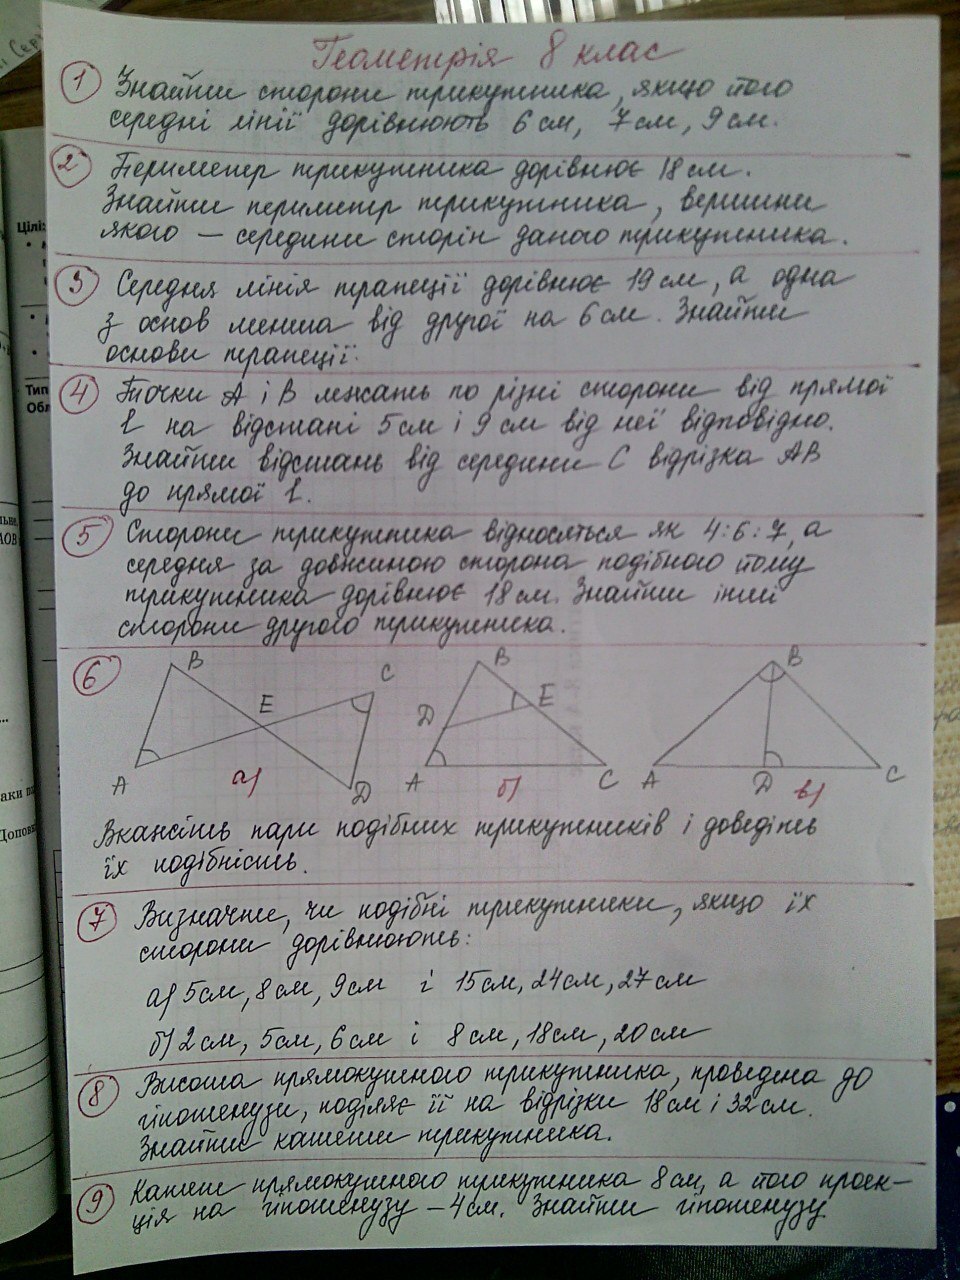 Геометрія 8 клас
1 Знайти сторони трикутника, якщо його
середні лінії дорівнюють 6 см, 7 см, 9 см.
2 Периметр трикутника дорівнює 18 см.
Знайти периметр трикутника, вершини
якого – середини сторін даного трикутника.
3 Середня лінія трапеції дорівнює 19 см, а одна
з основ менша від другої на 6 см. Знайти
основи трапеції.
4 Точки А і В лежать по різні сторони від прямої
l на відстані 5 см і 9 см від неї відповідно.
Знайти відстань від середини С відрізка АВ
до прямої l.
5 Сторони трикутника відносяться як 4:6:7, а
середня за довжиною сторона подібного йому
трикутника дорівнює 18 см. Знайти інші
сторони другого трикутника.
6
B C E A D а)
B D E A C б)
B A D C в)
Вкажіть пари подібних трикутників і доведіть
їх подібність.
7 Визначте, чи подібні трикутники, якщо їх
сторони дорівнюють:
а) 5 см, 8 см, 9 см і 15 см, 24 см, 27 см
б) 2 см, 5 см, 6 см і 8 см, 18 см, 20 см
8 Висота прямокутного трикутника, проведена до
гіпотенузи, поділяє її на відрізки 18 см і 32 см.
Знайти катети трикутника.
9 Катет прямокутного трикутника 8 см, а його проек-
ція на гіпотенузу – 4 см. Знайти гіпотенузу.
Цілі:
Тип
Обл